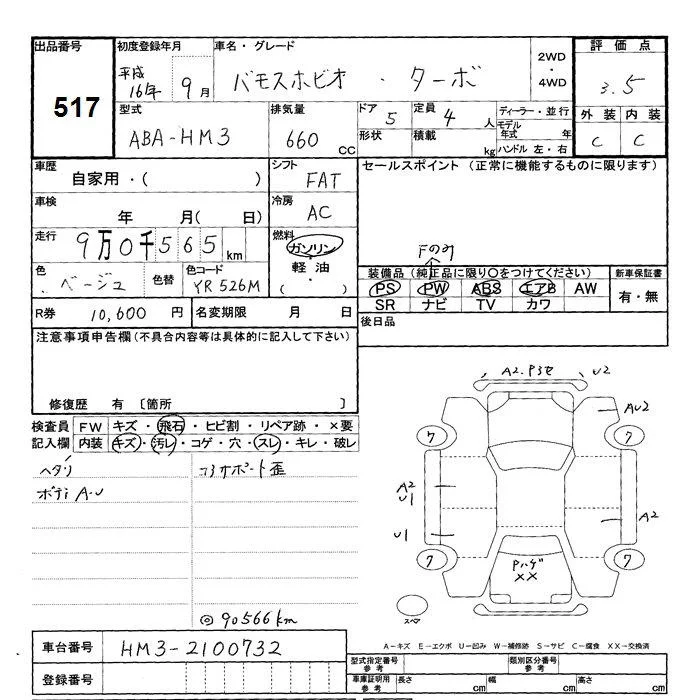 出品番号
517
初度登録年月
平成16年 9月
車名・グレード
バモスホビオ ・ ターボ
2WD
・
4WD
評価点
3.5
外装 内装
C C
型式
ABA-HM3
排気量
660 CC
ドア 5
定員 4 人
形状
積載 kg
ディーラー・並行
モデル年式 年
ハンドル 左・右
車歴
自家用・( )
シフト
FAT
セールスポイント (正常に機能するものに限ります)
車検
年 月( 日)
冷房
AC
走行
9万0千565km
燃料
ガソリン
軽油・
( )
Fのみ
色
ベージュ
色替
色コード
YR526M
装備品(純正品に限り○をつけてください)
PS PW ABS エアB AW
SR ナビ TV カワ
新車保証書
有・無
R券 10,600 円
名変期限 月 日
後日品
注意事項申告欄(不具合内容等は具体的に記入して下さい)
修復歴 有 [箇所 ]
検査員記入欄
FW キズ・飛石・ヒビ割・リペア跡・×要
内装 キズ・汚レ・コゲ・穴・スレ・キレ・破レ
ヘタリ
コアサポート歪
ボディA-U
◎90566km
A2.P3セ U2
AU2
7 7
A2
U1
A2
U1
7 7
Pハゲ
××
スペア
車台番号
HM3-2100732
登録番号
A-キズ E-エクボ U-凹み W-補修跡 S-サビ C-腐食 XX-交換済
型式指定番号
参考
類別区分番号
参考
車庫証明用
参考
長さ cm
幅 cm
高さ cm